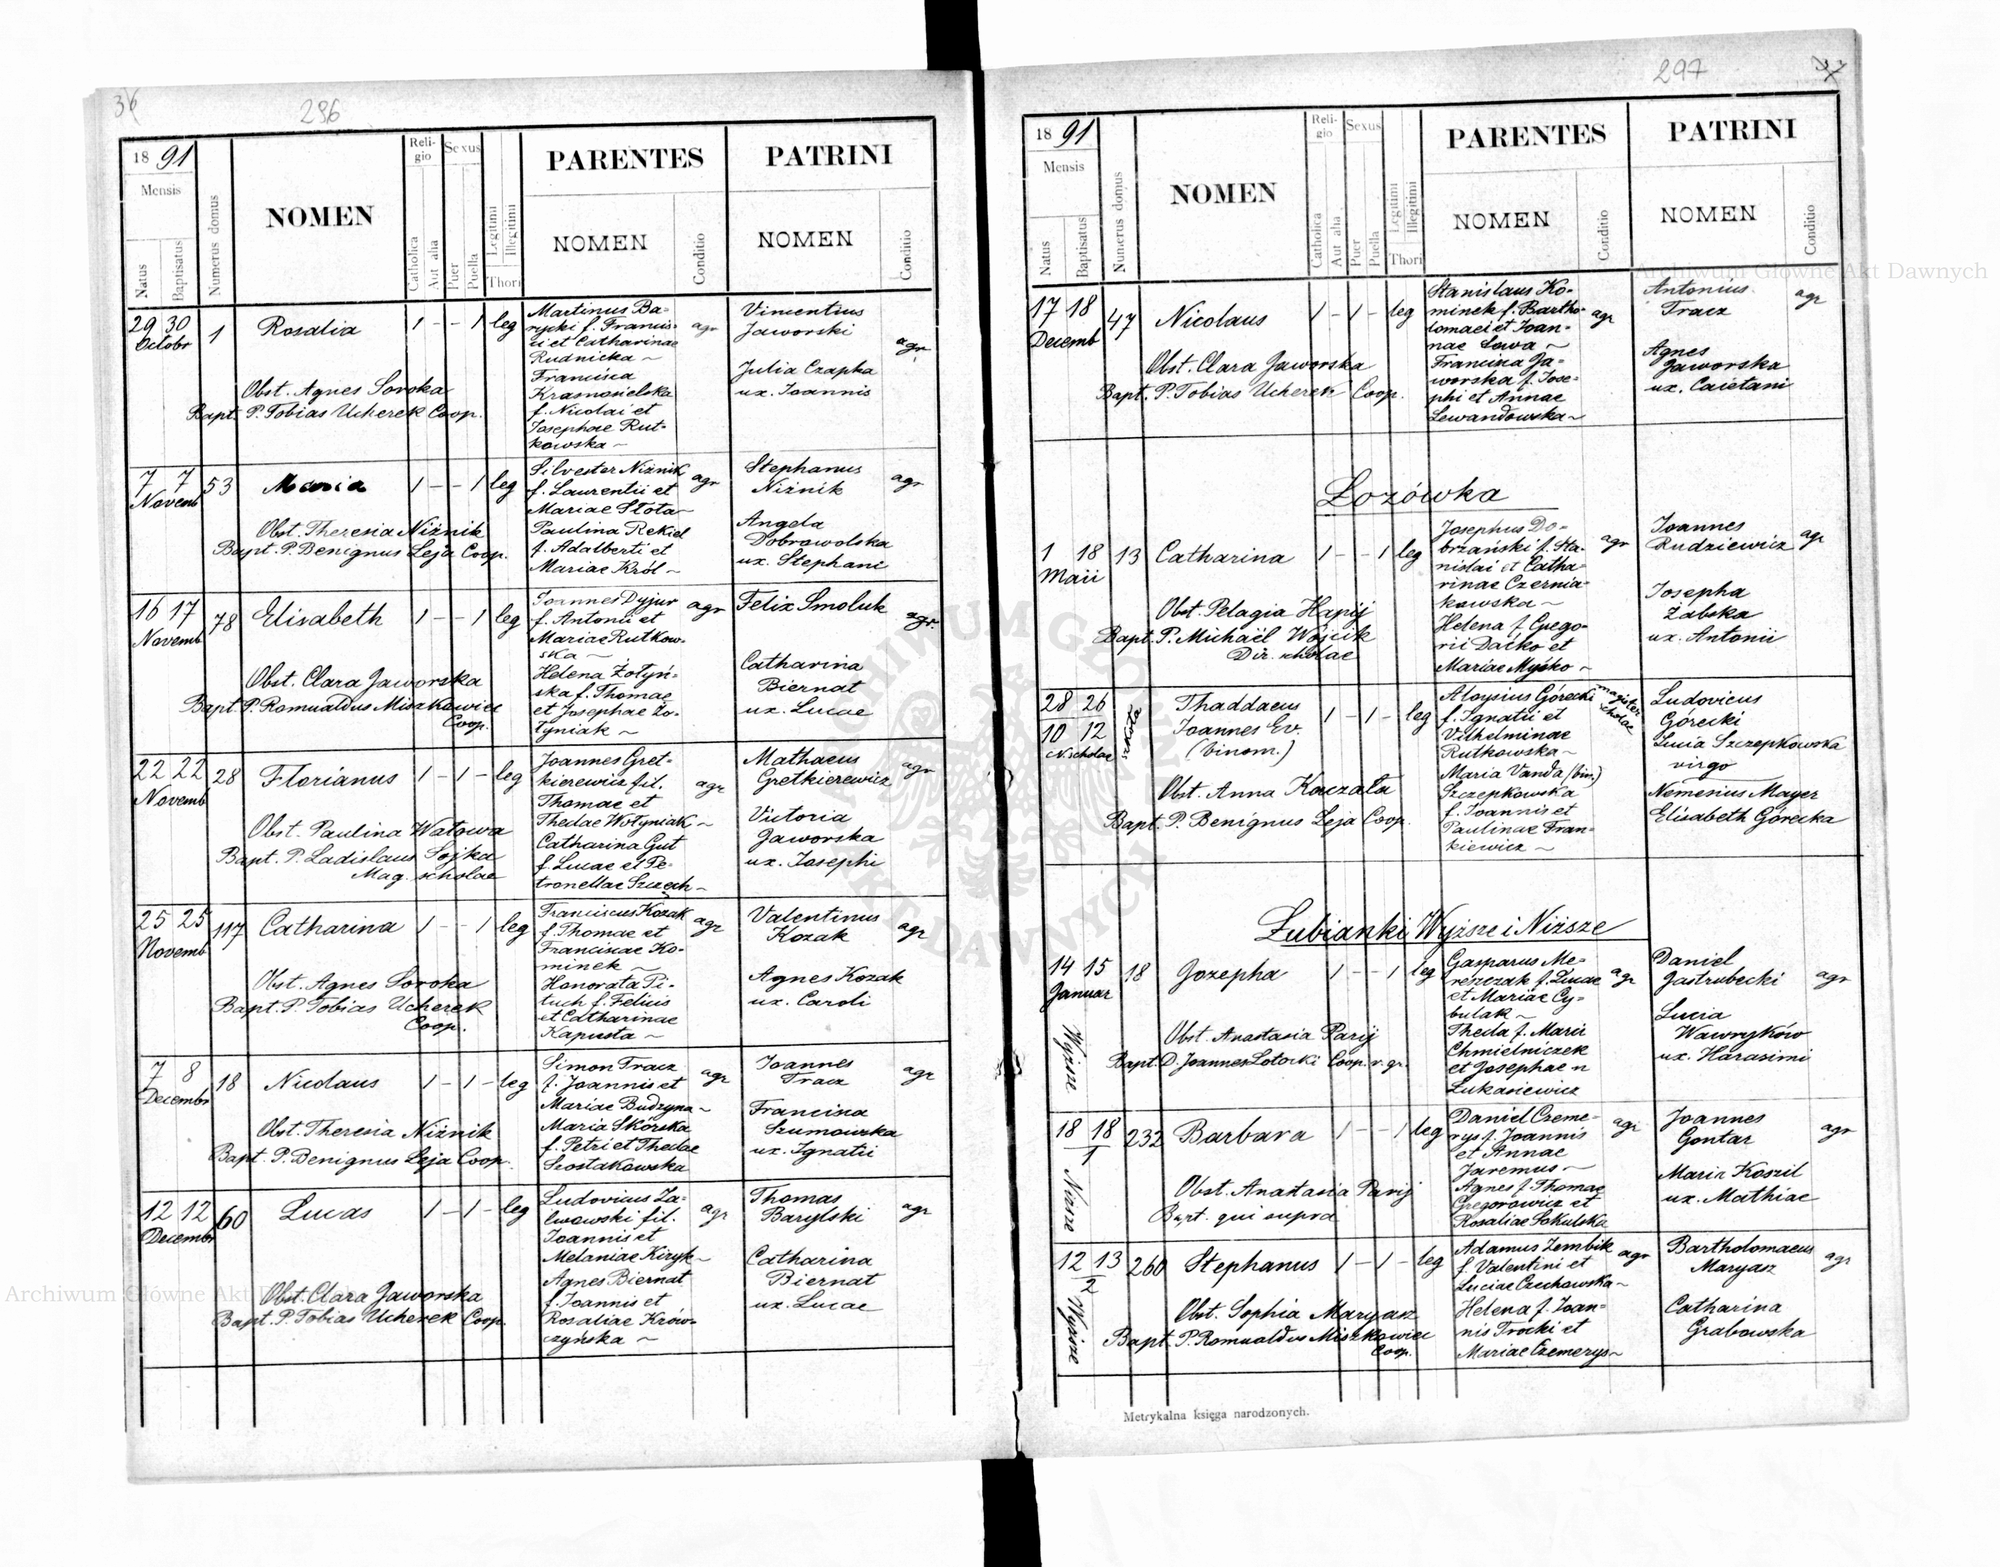 36
296
1891
Mensis
Natus
Baptisatus
Numerus domus
NOMEN
Religio
Catholica
Aut alia
Sexus
Puer
Puella
Legitimi
Illegitimi
Thori
PARENTES
NOMEN
Conditio
PATRINI
NOMEN
Conditio
29 30 Octobr 1 Rosalia 1 - - 1 leg
Obst. Agnes Soroka
Bapt. P. Tobias Ucherek Coop.
Martinus Ba-
rycki f. Francis-
ci et Catharinae
Rudnicka ~
Francisca
Krasnosielska
f. Nicolai et
Josephae Rut-
kowska ~
agr
Vincentius
Jaworski
Julia Czapka
ux. Joannis
agr
7 7 Novemb 53 Maria 1 - - 1 leg
Obst. Theresia Niżnik
Bapt. P. Benignus Leja Coop.
Silvester Niżnik
f. Laurentii et
Mariae Słota ~
Paulina Rekiel
f. Adalberti et
Mariae Król ~
agr
Stephanus
Niżnik
Angela
Dobrowolska
ux. Stephani
agr
16 17 Novemb 78 Elisabeth 1 - - 1 leg
Obst. Clara Jaworska
Bapt. P. Romualdus Miszkowiec
Coop.
Joannes Dyjur
f. Antonii et
Mariae Rutkow-
ska ~
Helena Żołyń-
ska f. Thomae
et Josephae Wo-
łyniak ~
agr
Felix Smoluk
Catharina
Biernat
ux. Lucae
agr.
22 22 Novemb 28 Florianus 1 - 1 - leg
Obst. Paulina Watowa
Bapt. P. Ladislaus Sojka
Mag. scholae
Joannes Gret-
kierewicz fil.
Thomae et
Theclae Wołyniak ~
Catharina Gut
f. Lucae et Pe-
tronellae Szczech ~
agr
Mathaeus
Gretkierewicz
Victoria
Jaworska
ux. Josephi
agr
25 25 Novemb 117 Catharina 1 - - 1 leg
Obst. Agnes Soroka
Bapt. P. Tobias Ucherek
Coop.
Franciscus Kozak
f. Thomae et
Franciscae Ko-
minek ~
Honorata Pi-
tuch f. Felicis
et Catharinae
Kapusta ~
agr
Valentinus
Kozak
Agnes Kozak
ux. Caroli
agr
7 8 Decembr 18 Nicolaus 1 - 1 - leg
Obst. Theresia Niżnik
Bapt. P. Benignus Leja Coop.
Simon Tracz
f. Joannis et
Mariae Budzyna ~
Maria Skórska
f. Petri et Theclae
Szostakowska
agr
Joannes
Tracz
Francisca
Szumowska
ux. Ignatii
agr
12 12 Decembr 60 Lucas 1 - 1 - leg
Obst. Clara Jaworska
Bapt. P. Tobias Ucherek Coop.
Ludovicus Za-
lwowski fil.
Joannis et
Melaniae Kiryk ~
Agnes Biernat
f. Joannis et
Rosaliae Krów-
czyńska ~
agr
Thomas
Barylski
Catharina
Biernat
ux. Lucae
agr
297
37
1891
Mensis
Natus
Baptisatus
Numerus domus
NOMEN
Religio
Catholica
Aut alia
Sexus
Puer
Puella
Legitimi
Illegitimi
Thori
PARENTES
NOMEN
Conditio
PATRINI
NOMEN
Conditio
17 18 Decemb 47 Nicolaus 1 - 1 - leg
Obst. Clara Jaworska
Bapt. P. Tobias Ucherek Coop.
Stanislaus Ko-
minek f. Bartho-
lomaei et Joan-
nae Sowa ~
Francisca Ja-
worska f. Jose-
phi et Annae
Lewandowska ~
agr
Antonius
Tracz
Agnes
Jaworska
ux. Caietani
agr
Łozówka
1 18 Maii 13 Catharina 1 - - 1 leg
Obst. Pelagia Hapij
Bapt. P. Michaël Wójcik
Dir. scholae
Josephus Do-
brzański f. Sta-
nislai et Catha-
rinae Czernia-
kowska ~
Helena f. Grego-
rii Daćko et
Mariae Myśko ~
agr
Joannes
Rudziewicz
Josepha
Żabska
ux. Antonii
agr
28 26
10 12
Thaddaeus
Joannes Ev.
(binom.)
1 - 1 - leg
Obst. Anna Kaczała
Bapt. P. Benignus Leja Coop.
Aloysius Górecki
f. Ignatii et
Vilhelminae
Rutkowska ~
Maria Vanda (bin.)
Szczepkowska
f. Joannis et
Paulinae Fran-
kiewicz ~
magister
scholae
Ludovicus
Górecki
Lucia Szczepkowska
virgo
Nemesius Mayer
Elisabeth Górecka
Łubianki Wyższe i Niższe
14 15 Januar 18 Jozepha 1 - - 1 leg
Wyższe
Obst. Anastasia Parij
Bapt. D. Joannes Łotocki Coop. r. gr.
Gasparus Me-
reszczak f. Lucae
et Mariae Cy-
bulak ~
Thecla f. Marci
Chmielniczek
et Josephae n
Łukasiewicz
agr
Daniel
Jastrubecki
Lucia
Wawryków
ux. Harasimi
agr
18 18
1
232 Barbara 1 - - 1 leg
Niższe
Obst. Anastasia Parij
Bapt. qui supra
Daniel Czeme-
rys f. Joannis
et Annae
Jaremus ~
Agnes f. Thomae
Gregorowicz et
Rosaliae Sokulska
agr
Joannes
Gontar
Maria Koszil
ux. Mathiae
agr
12 13
2
260 Stephanus 1 - 1 - leg
Wyższe
Obst. Sophia Maryasz
Bapt. P. Romualdus Miszkowiec
Coop.
Adamus Zembik
f. Valentini et
Luciae Czechowska ~
Helena f. Joan-
nis Trocki et
Mariae Czemerys ~
agr
Bartholomaeus
Maryasz
Catharina
Grabowska
agr
Metrykalna księga narodzonych.
Archiwum Główne Akt Dawnych
Archiwum Główne Akt Dawnych
ARCHIWUM GŁÓWNE AKT DAWNYCH